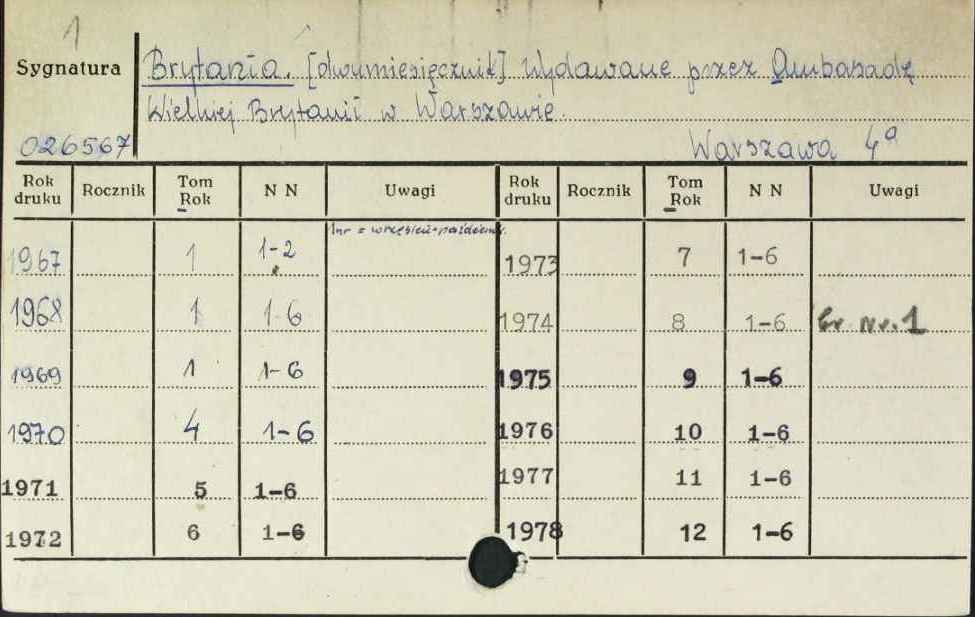 1
Sygnatura
Brytania. [dwumiesięcznik] Wydawane przez Ambasadę
Wielkiej Brytanii w Warszawie.
026567
Warszawa 4a
Rok druku Rocznik Tom Rok N N Uwagi Rok druku Rocznik Tom Rok N N Uwagi
1967 1 1-2 1nr = wrzesień-październ. 1973 7 1-6
1968 1 1-6 1974 8 1-6 nr. 1
1969 1 1-6 1975 9 1-6
1970 4 1-6 1976 10 1-6
1971 5 1-6 1977 11 1-6
1972 6 1-6 1978 12 1-6